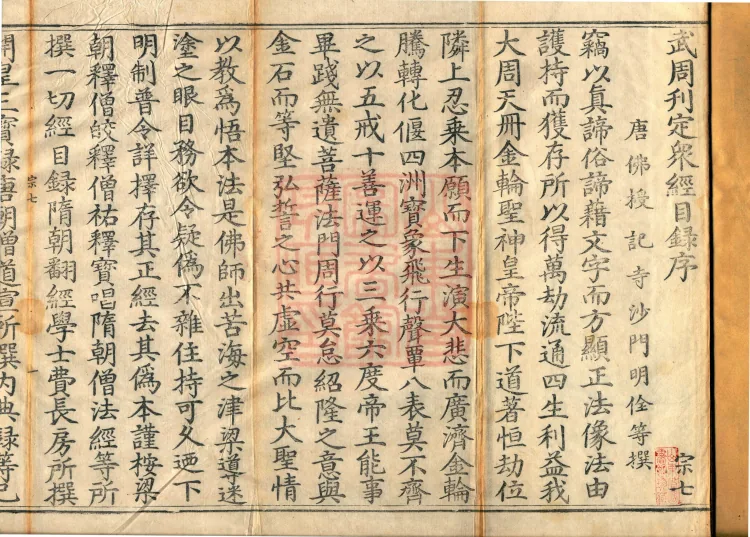 武周刊定衆經目録序
宗七
唐佛授記寺沙門明佺等撰
竊以眞諦俗諦藉文字而方顯正法像法由
護持而獲存所以得萬劫流通四生利益我
大周天冊金輪聖神皇帝陛下道著恒劫位
隣上忍乘本願而下生演大悲而廣濟金輪
騰轉化偃四洲寶象飛行聲覃八表莫不齊
之以五戒十善運之以三乘六度帝王能事
畢踐無遺菩薩法門周行莫怠紹隆之意與
金石而等堅弘誓之心共虛空而比大聖情
以教爲悟本法是佛師出苦海之津梁導迷
塗之眼目務欲令疑僞不雜住持可久廼下
明制普令詳擇存其正經去其僞本謹桉梁
朝釋僧皎釋僧祐釋寶唱隋朝僧法經等所
撰一切經目録隋朝翻經學士費長房所撰
宗七
一
開皇三寶録唐朝僧道宣所撰内典録等已